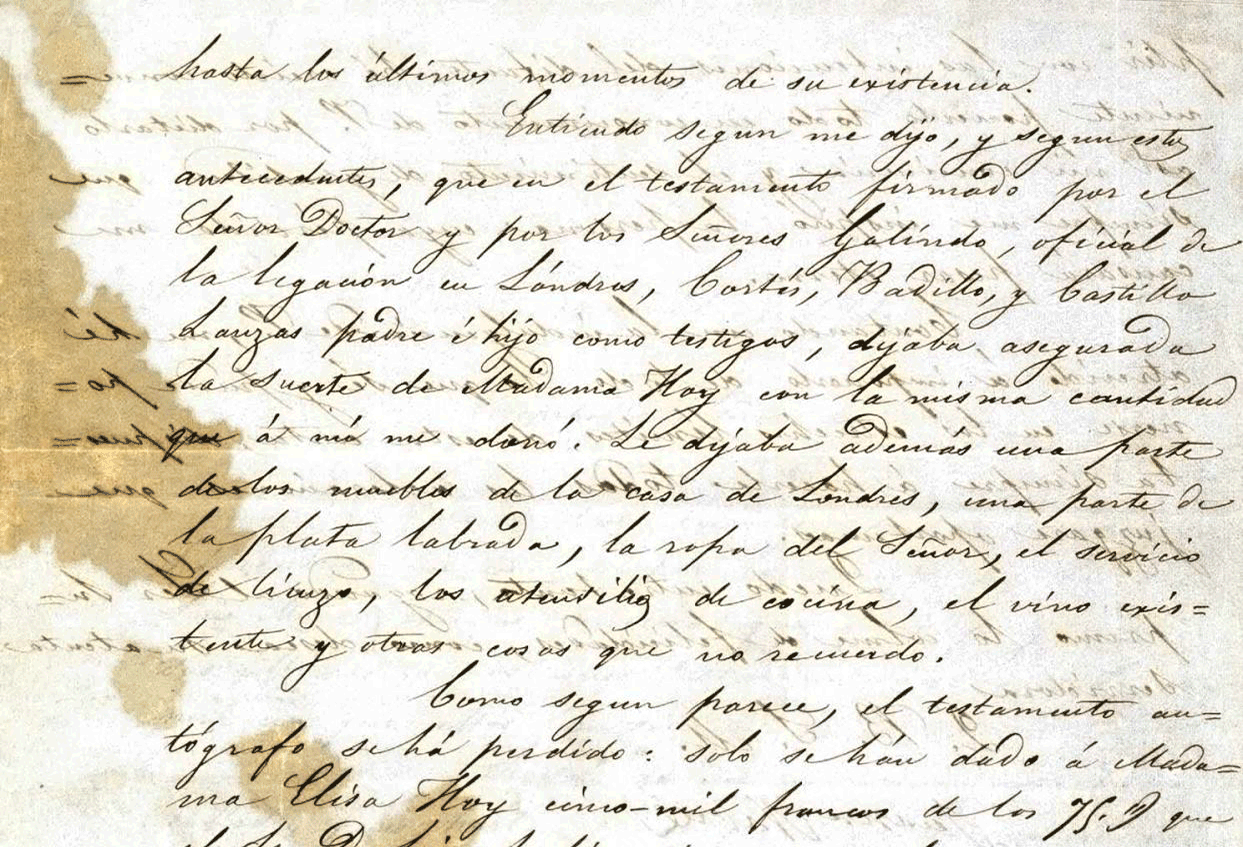 hasta los últimos momentos de su existencia.
Entiendo segun me dijo, y segun estos
antecedentes, que en el testamento firmado por el
Señor Doctor y por los Señores Galindo, oficial de
la legación en Lóndres, Cortés, Badillo, y Castillo
Lanzas padre é hijo como testigos, dejaba asegurada
la suerte de Madama Hoy con la misma cantidad
que á mí me donó. Le dejaba además una parte
de los muebles de la casa de Londres, una parte de
la plata labrada, la ropa del Señor, el servicio
de lienzo, los utensilios de cocina, el vino exis=
tente y otras cosas que no recuerdo.
Como segun parece, el testamento au=
tógrafo se há perdido: solo se hán dado á Mada=
ma Elisa Hoy cinco-mil francos de los que
el